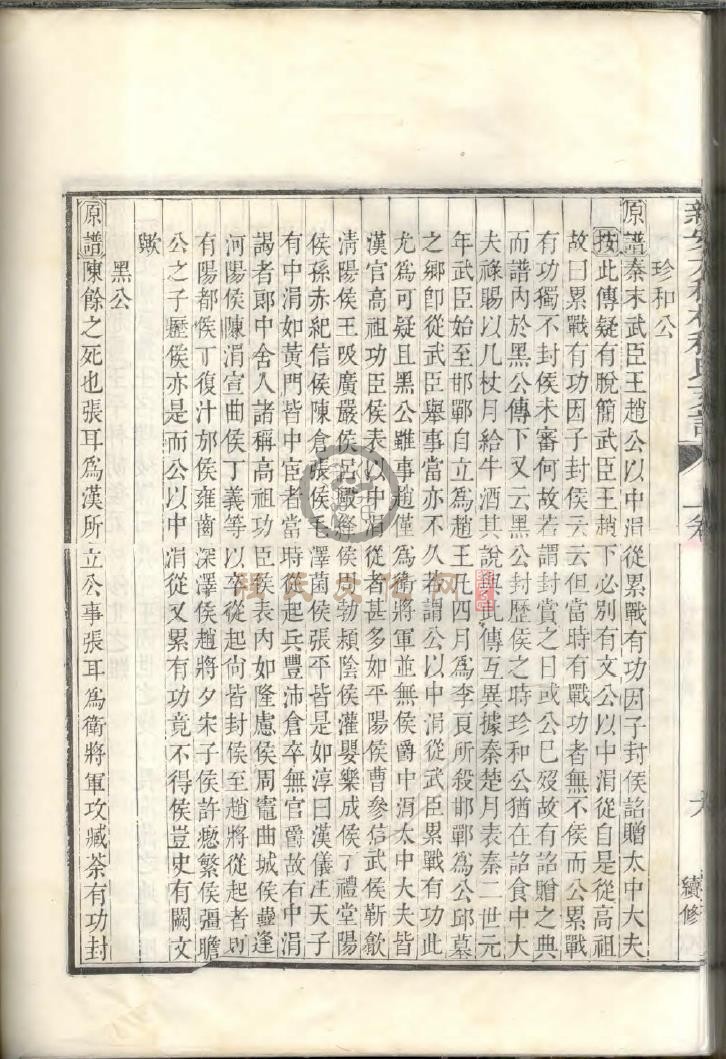 珍和公
原譜秦末武臣王趙公以中涓從累戰有功因子封侯詔贈太中大夫
按此傳疑有脫簡武臣王趙下必別有文公以中涓從自是從高祖
故曰累戰有功因子封侯云云但當時有戰功者無不侯而公累戰
有功獨不封侯未審何故若謂封賞之日或公已歿故有詔贈之典
而譜內於黑公傳下又云黑公封歷侯之時珍和公猶在詔食中大
夫祿賜以几杖月給牛酒其說與此傳互異據秦楚月表秦二世元
年武臣始至邯鄲自立為趙王凡四月為李良所殺邯鄲為公邱墓
之鄉卽從武臣舉事當亦不久若謂公以中涓從武臣累戰有功此
尤為可疑且黑公雖事趙僅為衛將軍並無侯爵中涓太中大夫皆
漢官高祖功臣侯表以中涓從者甚多如平陽侯曹參信武侯靳歙
淸陽侯王吸廣嚴侯呂歐絳侯周勃頴陰侯灌嬰樂成侯丁禮堂陽
侯孫赤紀信侯陳倉張侯毛澤菌侯張平皆是如淳曰漢儀注天子
有中涓如黃門皆中宦者當時從起兵豐沛倉卒無官爵故有中涓
謁者郎中舍人諸稱高祖功臣侯表內如隆慮侯周竈曲城侯蠱逢
河陽侯陳涓宣曲侯丁義等以卒從起尙皆封侯至趙將從起者則
有陽都侯丁復汁邡侯雍齒深澤侯趙將夕宋子侯許瘛繁侯彊瞻
公之子歷侯亦是而公以中涓從又累有功竟不得侯豈史有闕文
歟
黑公
原譜陳餘之死也張耳為漢所立公事張耳為衛將軍攻臧荼有功封
六
續修